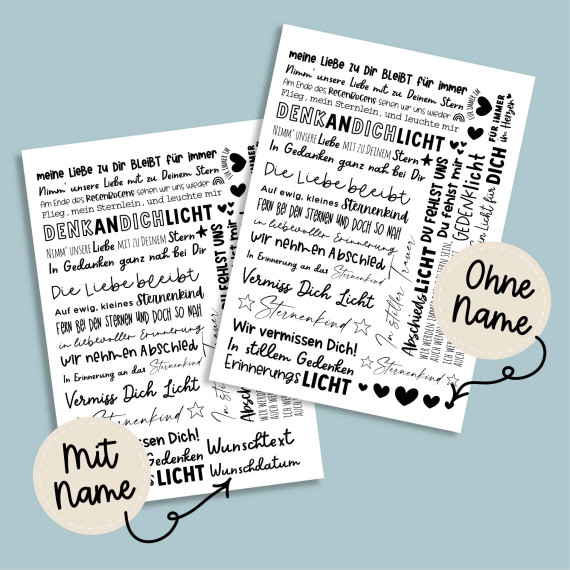 meine Liebe zu Dir BLEIBT für immer
Nimm' unsere Liebe mit zu Deinem Stern
Am Ende des REGENBOGENS sehen wir uns wieder
Flieg, mein Sternlein, und leuchte mir
DENKANDICHLICHT
NIMM' UNSERE Liebe MIT ZU DEINEM Stern
In Gedanken ganz nah bei Dir
Die Liebe bleibt
Auf ewig, kleines Sternenkind
FERN BEI DEN STERNEN UND DOCH SO NAH
in liebevoller Erinnerung
wir nehmen Abschied
In Erinnerung an das Sternenkind
Vermiss Dich Licht
Sternenkind
Wir vermissen Dich!
In stillem Gedenken
ErinnerungsLICHT
FÜR IMMER
im Herzen
Ein Licht für DICH
GEDENKlicht
Du fehlst mir
DU FEHLST UNS
In stiller Trauer
AbschiedsLICHT
Sternenkind
Ohne
Name
meine Liebe zu Dir BLEIBT für immer
Nimm' unsere Liebe mit zu Deinem Stern
Am Ende des REGENBOGENS sehen wir uns wieder
Flieg, mein Sternlein, und leuchte mir
DENKANDICHLICHT
NIMM' UNSERE Liebe MIT ZU DEINEM Stern
In Gedanken ganz nah bei Dir
Die Liebe bleibt
Auf ewig, kleines Sternenkind
FERN BEI DEN STERNEN UND DOCH SO NAH
in liebevoller Erinnerung
wir nehmen Abschied
In Erinnerung an das Sternenkind
Vermiss Dich Licht
Sternenkind
issen Dich!
Gedenken
LICHT
Wunschtext
Wunschdatum
Mit
Name